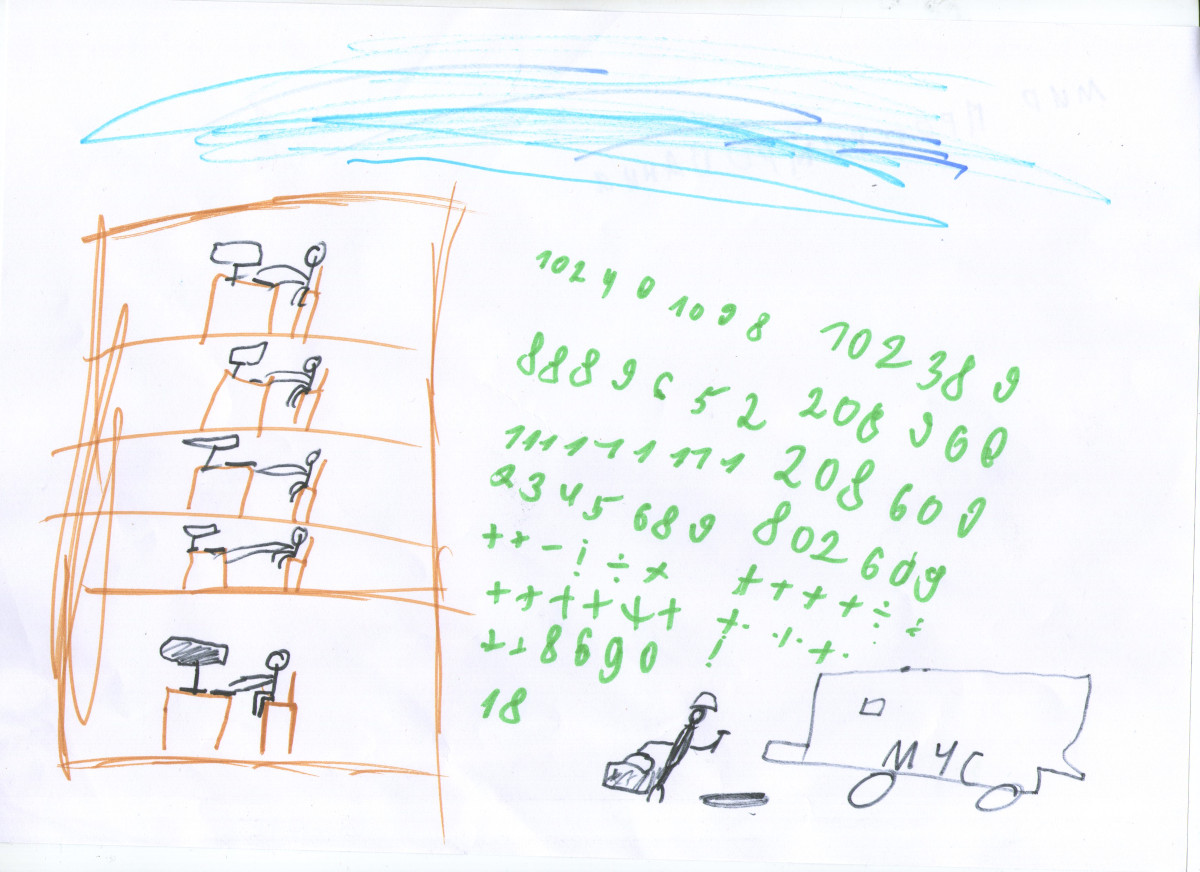 10240 1098 102389
8889652 208960
111111111 208609
2345689 802609
++-!÷× ++++÷÷
++++++ +.
++8690 !
18
МЧС